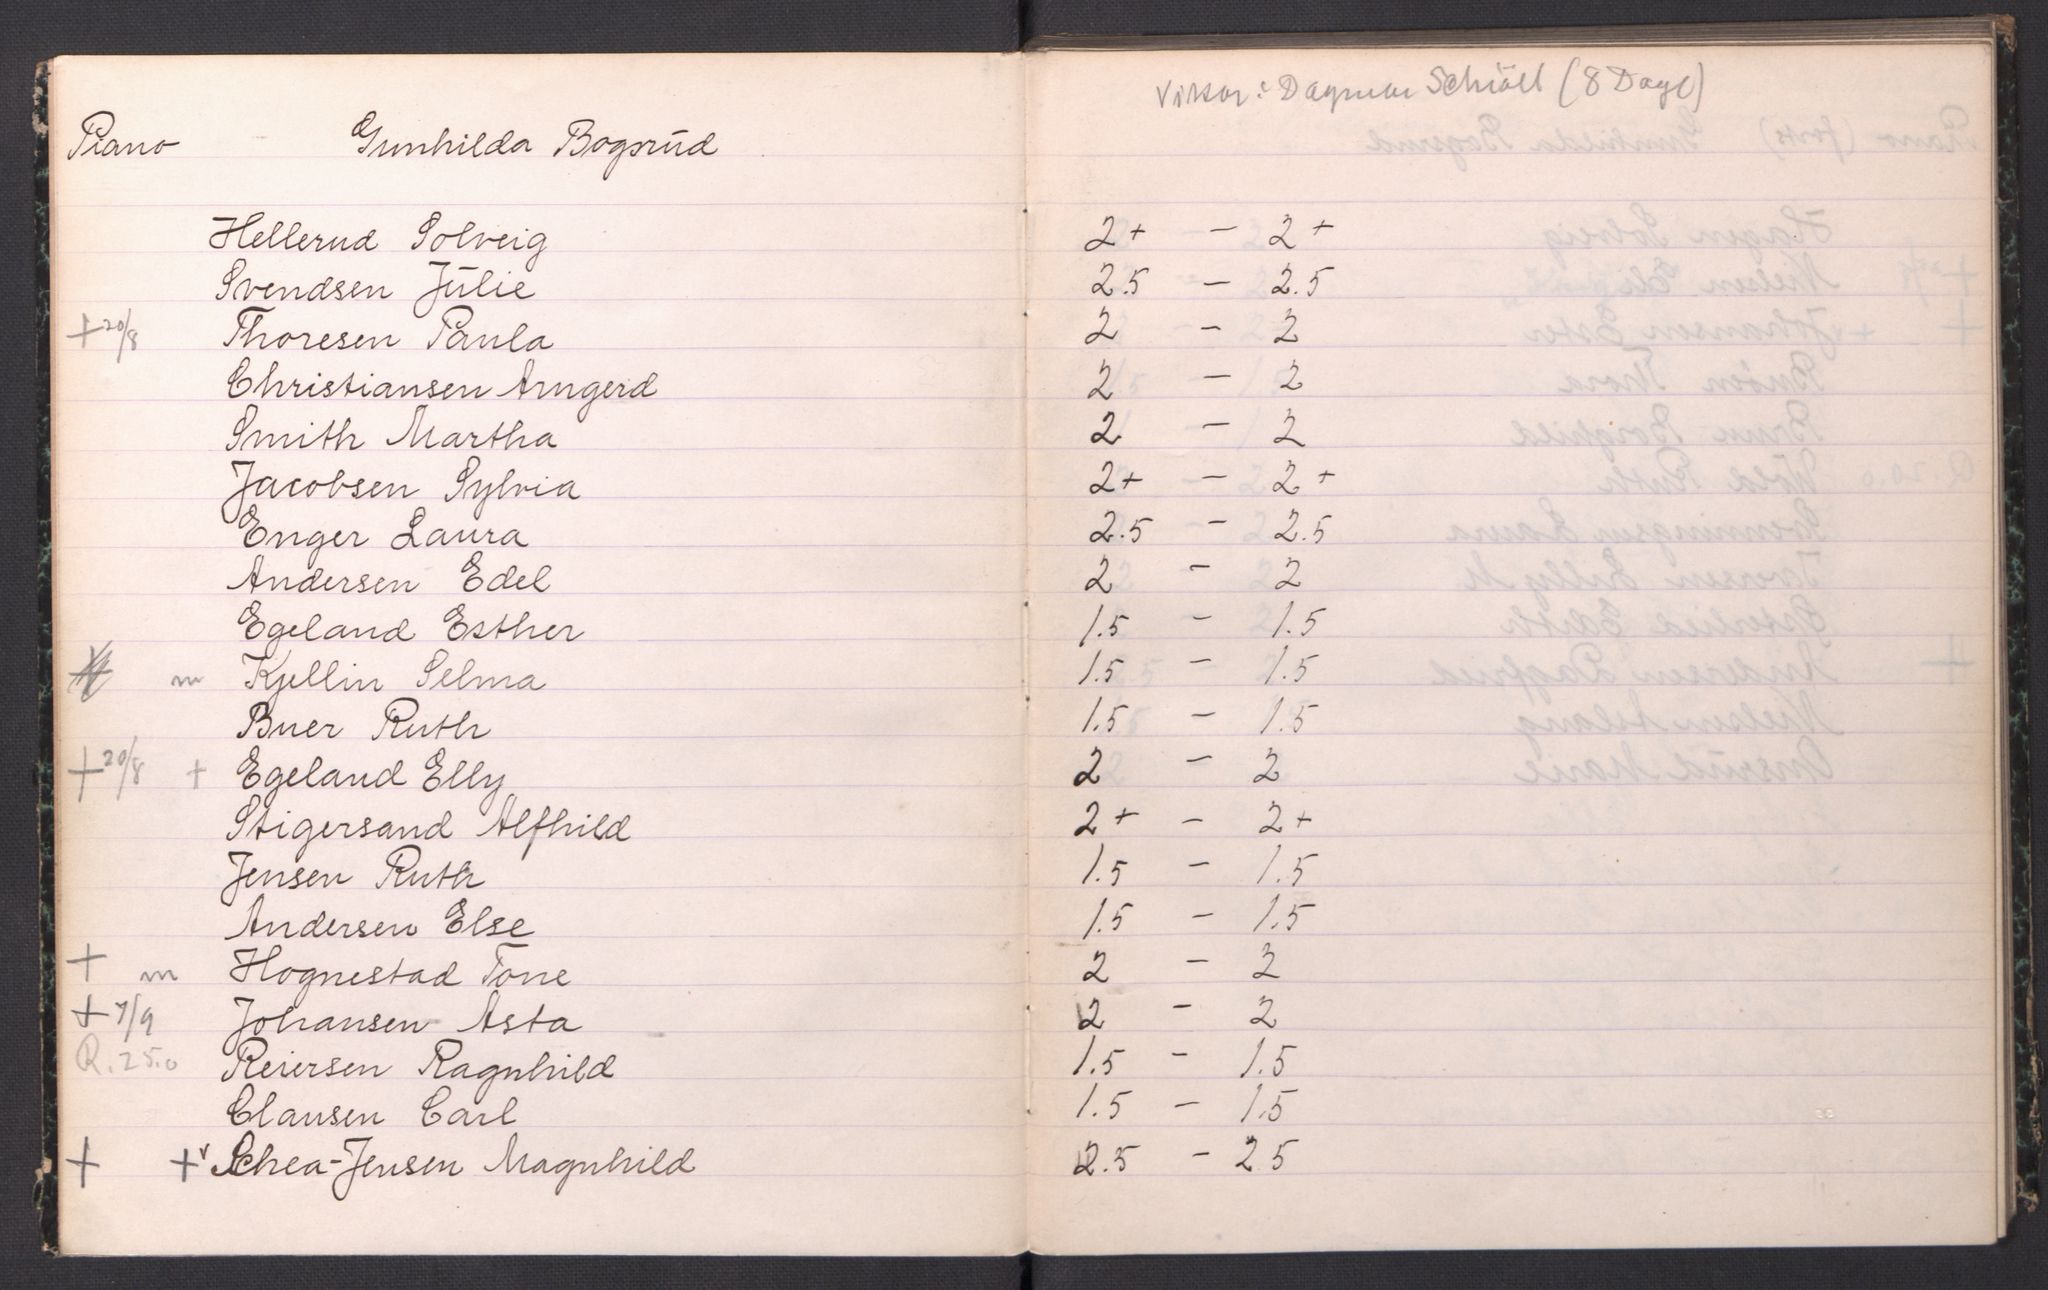 Vikar: Dagmar Schiöll (8 Dage)
Piano Gunhilda Bogsrud
Hellerud Solveig 2+ - 2+
Svendsen Julie 2.5 - 2.5
+ 20/8 Thoresen Paula 2 - 2
Christiansen Arngerd 2 - 2
Smith Martha 2 - 2
Jacobsen Sylvia 2+ - 2+
Enger Laura 2.5 - 2.5
Andersen Edel 2 - 2
Egeland Esther 1.5 - 1.5
m Kjellin Selma 1.5 - 1.5
Buer Ruth 1.5 - 1.5
+ 20/8 + Egeland Elly 2 - 2
Stigersand Alfhild 2+ - 2+
Jensen Ruth 1.5 - 1.5
Andersen Else 1.5 - 1.5
+ m Hognestad Tone 2 - 2
+ 7/9 Johansen Asta 2 - 2
R. 25.0 Reiersen Ragnhild 1.5 - 1.5
Clausen Carl 1.5 - 1.5
+ + v Schea-Jensen Magnhild 2.5 - 25